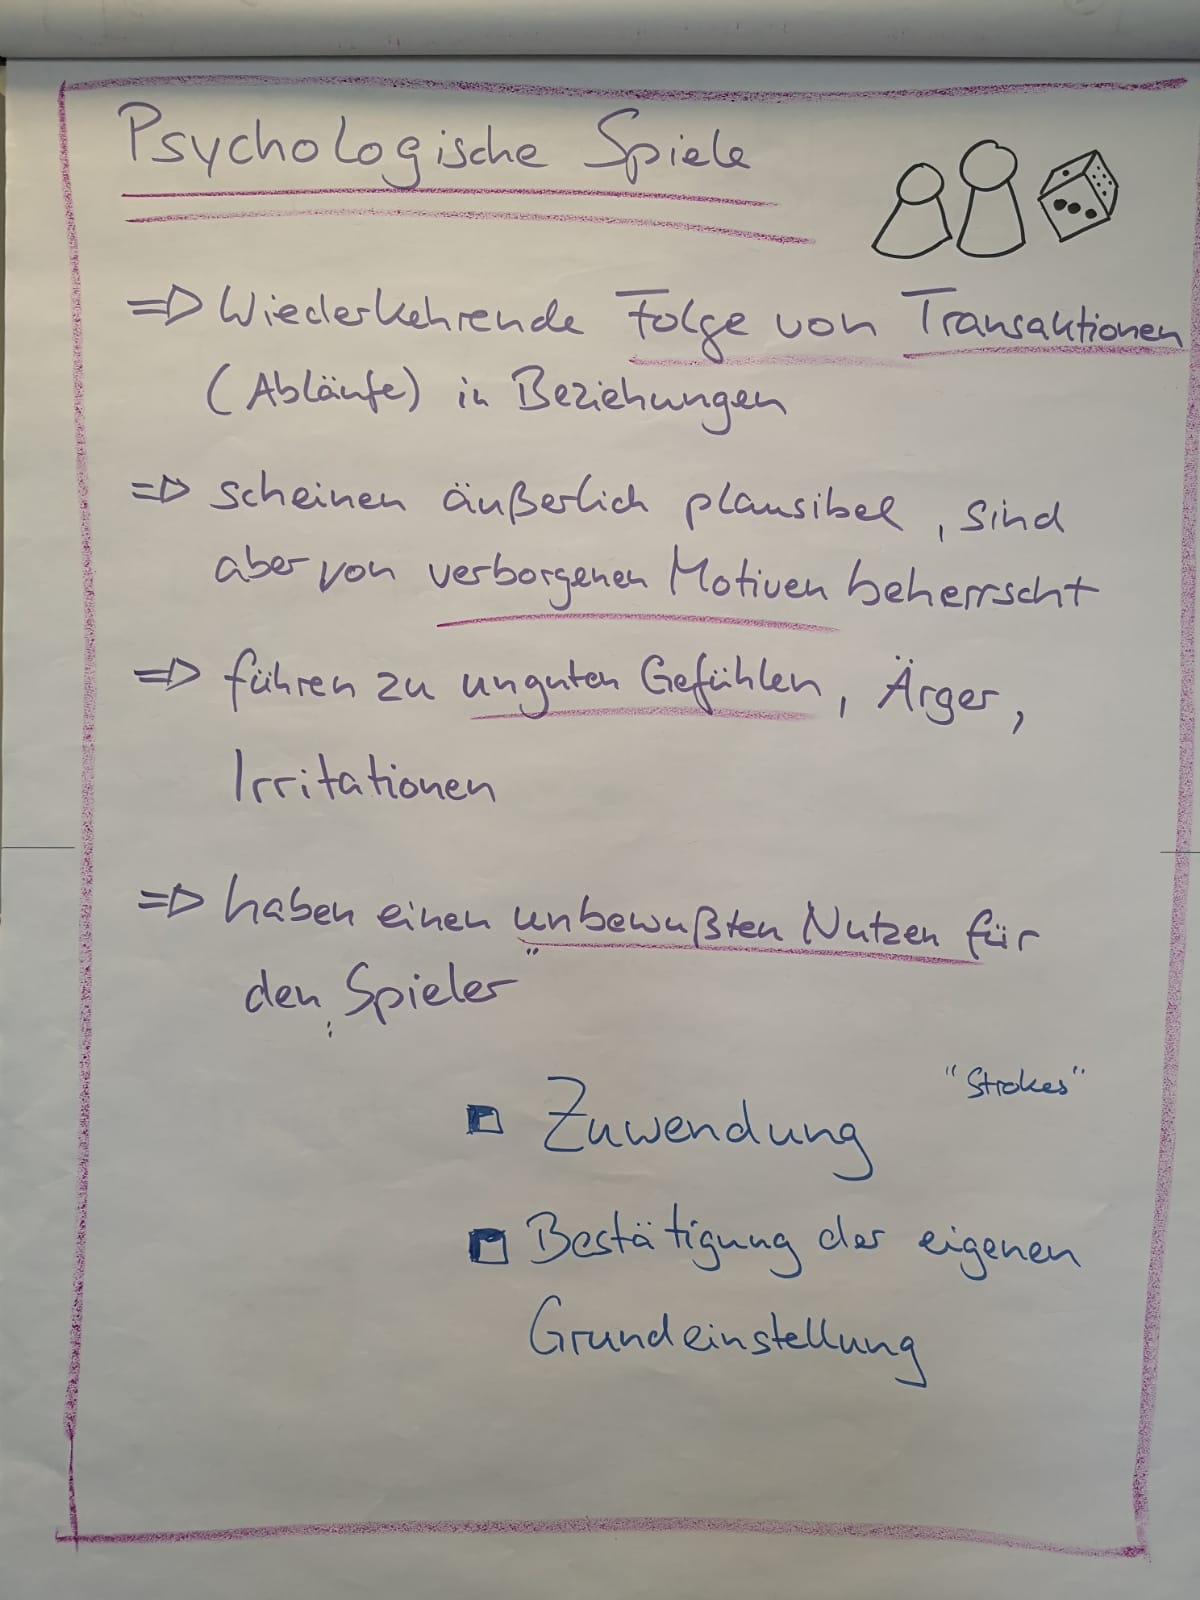 Psychologische Spiele
=> Wiederkehrende Folge von Transaktionen
(Abläufe) in Beziehungen
=> scheinen äußerlich plausibel, sind
aber von verborgenen Motiven beherrscht
=> führen zu unguten Gefühlen, Ärger,
Irritationen
=> haben einen unbewußten Nutzen für
den „Spieler"
"Strokes"
Zuwendung
Bestätigung der eigenen
Grundeinstellung